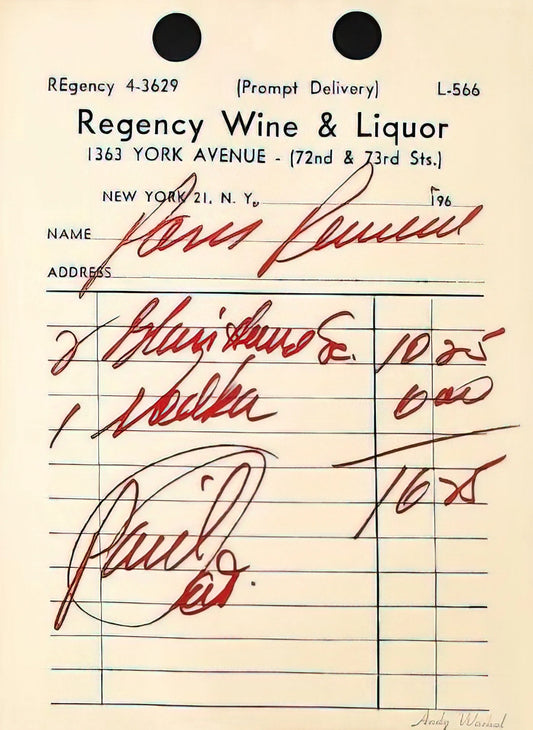 REgency 4-3629 (Prompt Delivery) L-566
Regency Wine & Liquor
1363 YORK AVENUE - (72nd & 73rd Sts.)
NEW YORK 21, N. Y. 196
NAME Paris
ADDRESS
2 10 25
1 Vodka 6 00
16 25
Paid
Andy Warhol